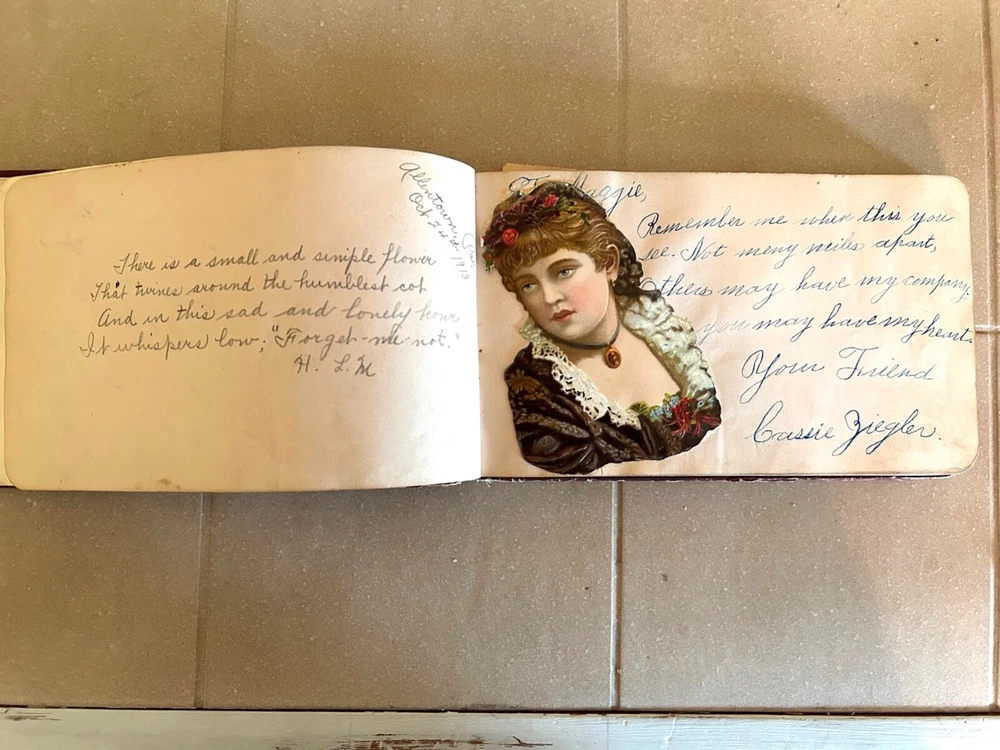 Allentown
Oct 24 1913
There is a small and simple flower
That twines around the humblest cot
And in this sad and lonely hour
It whispers low; "Forget-me-not."
H. L. M
To Maggie,
Remember me when this you
see. Not meny miles apart,
Others may have my company.
you may have my heart.
Your Friend
Cassie Ziegler.